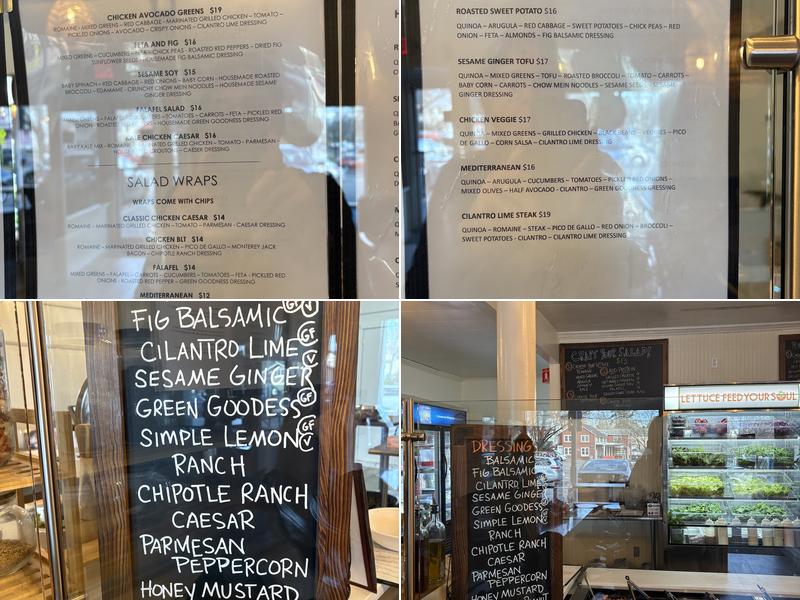 CHICKEN AVOCADO GREENS $19
ROMAINE - MIXED GREENS - RED CABBAGE - MARINATED GRILLED CHICKEN - TOMATO -
PICKLED ONIONS - AVOCADO - CRISPY ONIONS - CILANTRO LIME DRESSING
FETA AND FIG $16
MIXED GREENS - CUCUMBERS - FETA - CHICK PEAS - ROASTED RED PEPPERS - DRIED FIG
SUNFLOWER SEEDS - HOUSEMADE FIG BALSAMIC DRESSING
SESAME SOY $15
BABY SPINACH - RED CABBAGE - RED ONIONS - BABY CORN - HOUSEMADE ROASTED
BROCCOLI - EDAMAME - CRUNCHY CHOW MEIN NOODLES - HOUSEMADE SESAME
GINGER DRESSING
FALAFEL SALAD $16
MIXED GREENS - FALAFEL - TOMATOES - CARROTS - FETA - PICKLED RED
ONION - ROASTED RED PEPPERS - HOUSEMADE GREEN GOODNESS DRESSING
KALE CHICKEN CAESAR $16
BABY KALE MIX - ROMAINE - MARINATED GRILLED CHICKEN - TOMATO - PARMESAN -
CROUTONS - CAESER DRESSING
SALAD WRAPS
WRAPS COME WITH CHIPS
CLASSIC CHICKEN CAESAR $14
ROMAINE - MARINATED GRILLED CHICKEN - TOMATO - PARMESAN - CAESAR DRESSING
CHICKEN BLT $14
ROMAINE - MARINATED GRILLED CHICKEN - PICO DE GALLO - MONTEREY JACK
BACON - CHIPOTLE RANCH DRESSING
FALAFEL $14
MIXED GREENS - FALAFEL - CARROTS - CUCUMBERS - TOMATOES - FETA - PICKLED RED
ONIONS - ROASTED RED PEPPER - GREEN GOODNESS DRESSING
MEDITERRANEAN $12
ROASTED SWEET POTATO $16
QUINOA – ARUGULA – RED CABBAGE – SWEET POTATOES – CHICK PEAS – RED
ONION – FETA – ALMONDS – FIG BALSAMIC DRESSING
SESAME GINGER TOFU $17
QUINOA – MIXED GREENS – TOFU – ROASTED BROCCOLI – TOMATO – CARROTS –
BABY CORN – CARROTS – CHOW MEIN NOODLES – SESAME SEEDS – SESAME
GINGER DRESSING
CHICKEN VEGGIE $17
QUINOA – MIXED GREENS – GRILLED CHICKEN – BLACK BEANS – VEGGIES – PICO
DE GALLO – CORN SALSA – CILANTRO LIME DRESSING
MEDITERRANEAN $16
QUINOA – ARUGULA – CUCUMBERS – TOMATOES – PICKLED RED ONIONS –
MIXED OLIVES – HALF AVOCADO - CILANTRO – GREEN GOODNESS DRESSING
CILANTRO LIME STEAK $19
QUINOA – ROMAINE – STEAK – PICO DE GALLO – RED ONION – BROCCOLI –
SWEET POTATOES - CILANTRO – CILANTRO LIME DRESSING
FIG BALSAMIC GF V
CILANTRO LIME GF
SESAME GINGER V
GREEN GOODESS GF
SIMPLE LEMON GF V
RANCH
CHIPOTLE RANCH
CAESAR
PARMESAN
PEPPERCORN
HONEY MUSTARD
CRAFT YOUR SALAD!
LETTUCE FEED YOUR SOUL
DRESSING
BALSAMIC
FIG BALSAMIC
CILANTRO LIME
SESAME GINGER
GREEN GOODESS
SIMPLE LEMON
RANCH
CHIPOTLE RANCH
CAESAR
PARMESAN
PEPPERCORN
HONEY MUSTARD